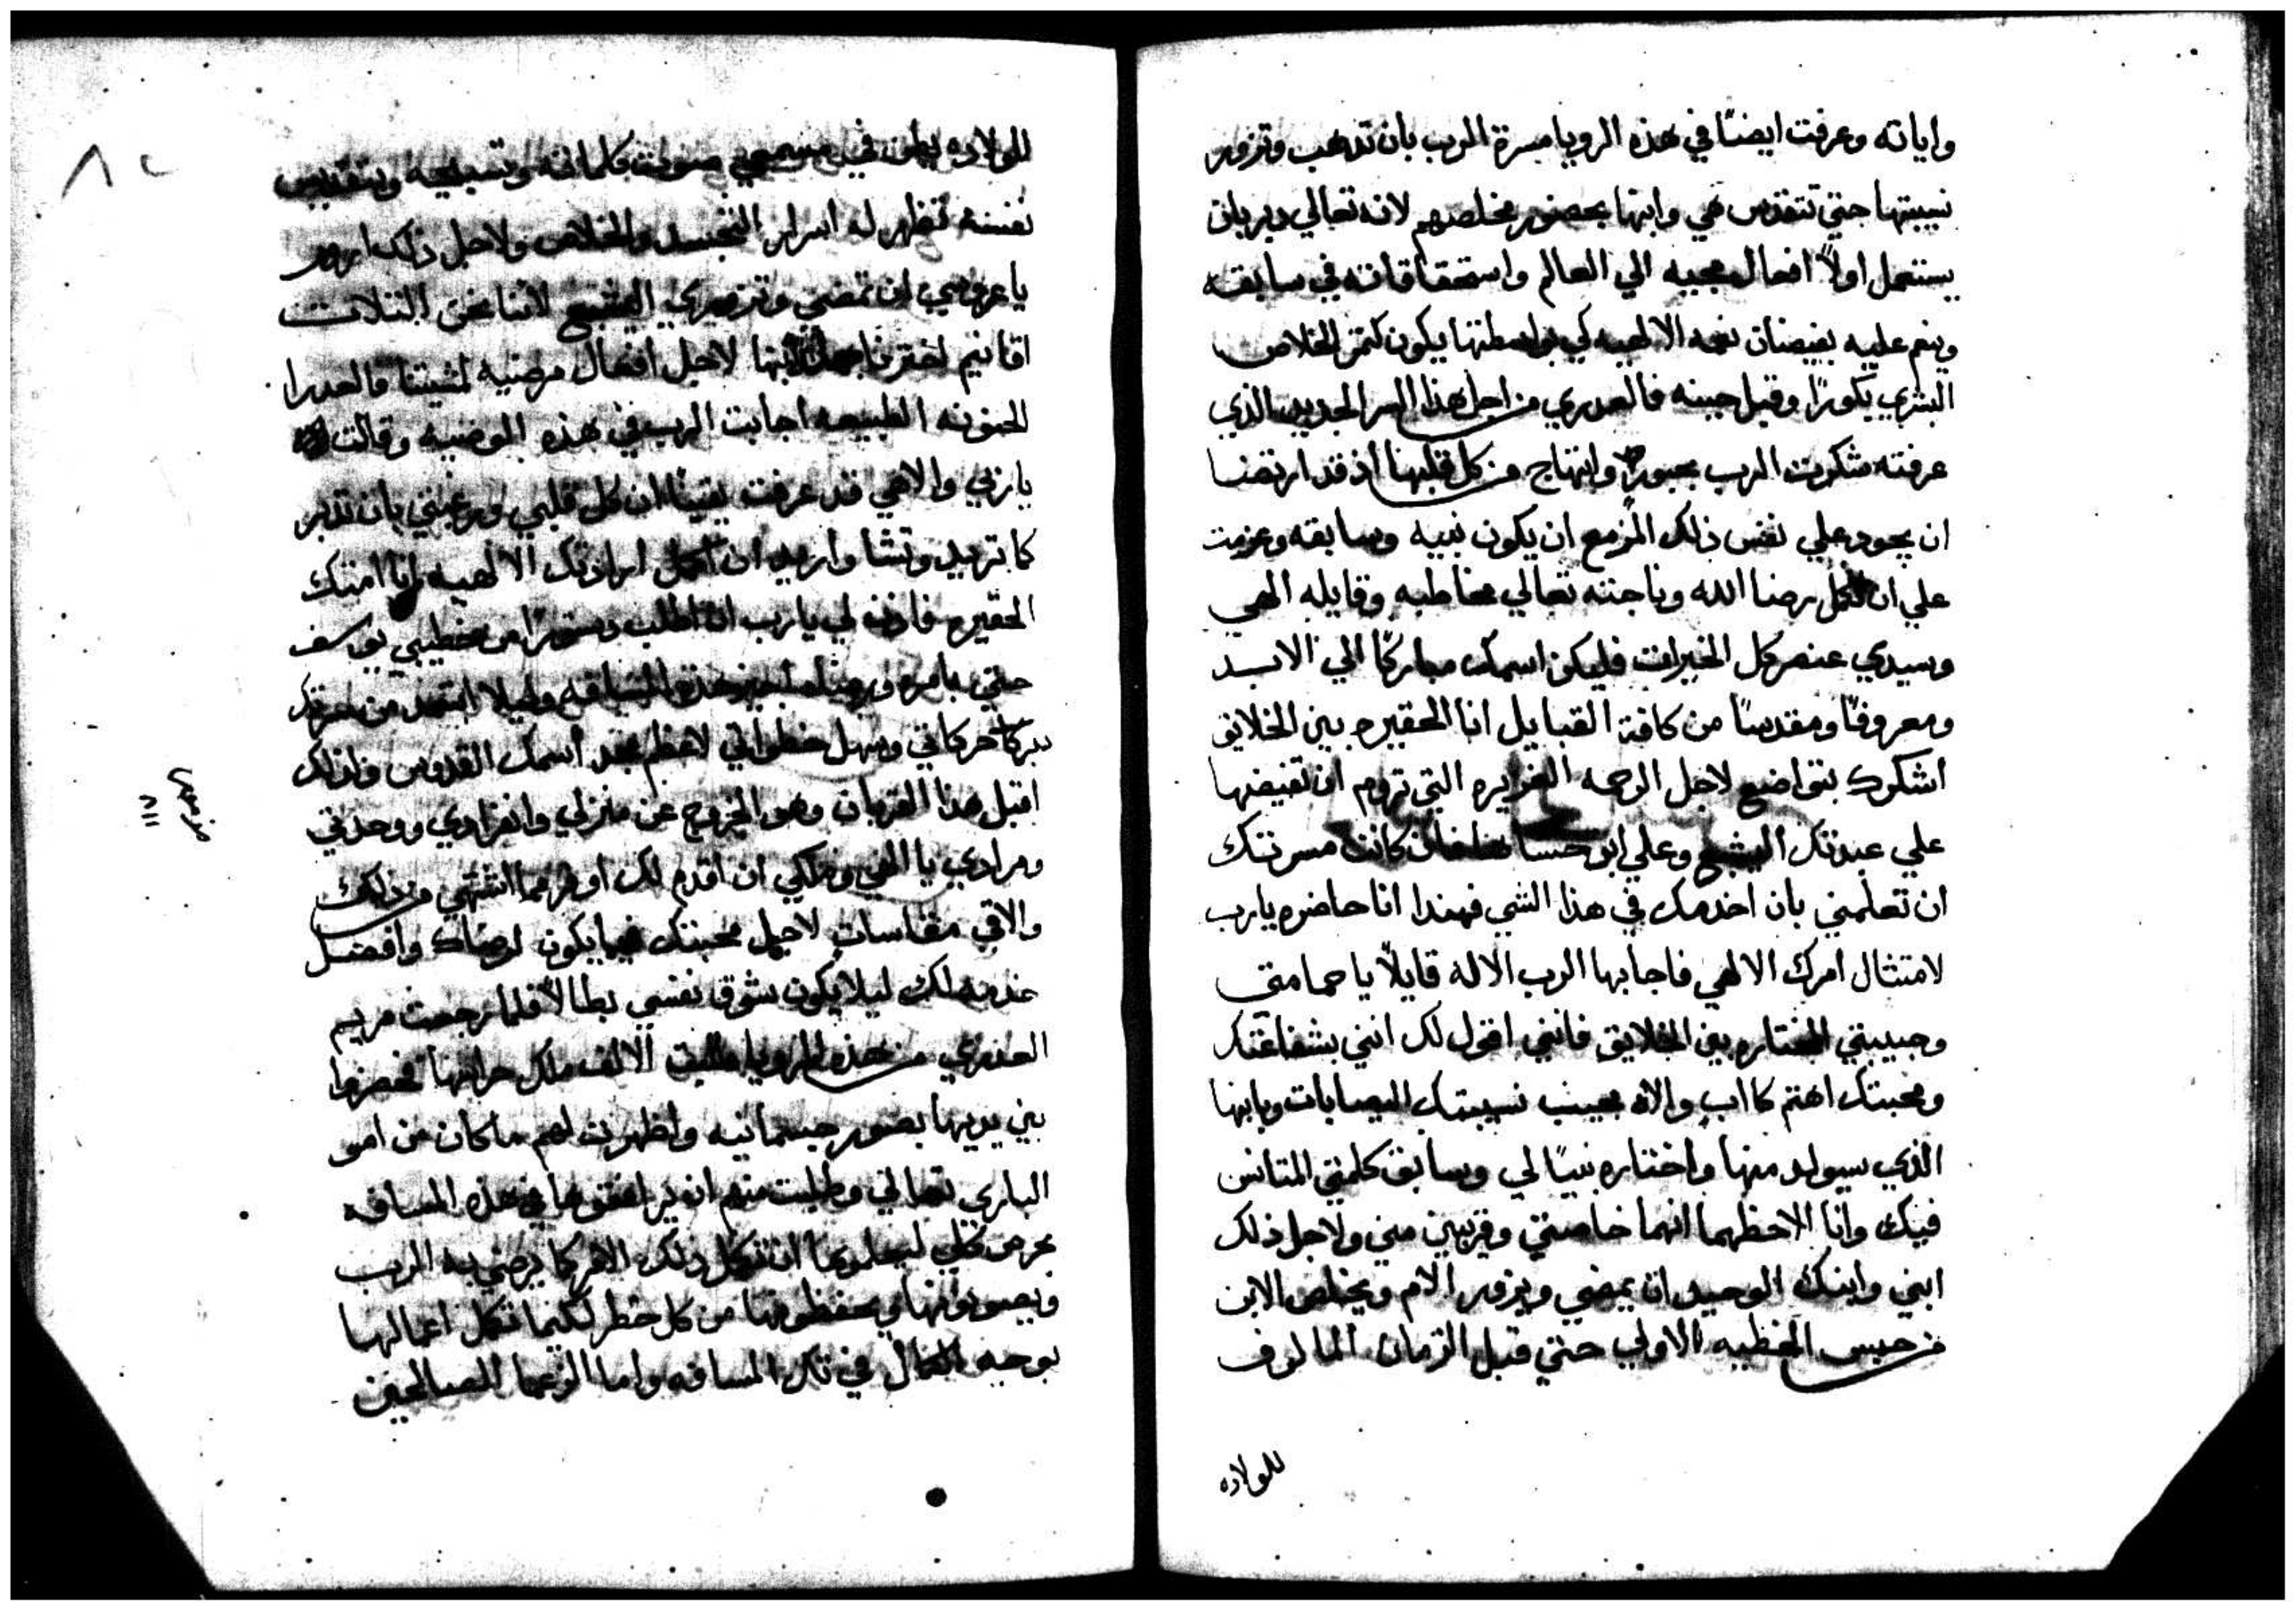 واياته وعرفت ايضًا في هذه الرويا مسرة الرب بان تذهب وتزور
نسيبتها حتي تتقدس هي وابنها بحضور مخلصهم لانه تعالي يريد بان
يستعمل اولاً افعال مجيه الي العالم واستحقاقاته في سابقه
وينعم عليه بفيضان نعمه الالهيه لكي بواسطتها يكون كثمر الخلاص
البشري بكورًا وقبل حينه فالعدري من اجل هذا السر الجديد الذي
عرفته شكرت الرب بحبور وابتهاج من كل قلبها اذ قد ارتضا
ان يجود علي نفس ذلك المزمع ان يكون نبيه وسابقه وعزمت
علي ان تكمل رضا الله وناجته تعالي مخاطبه وقايله الهي
وسيدي عنصر كل الخيرات فليكن اسمك مباركًا الي الابد
ومعروفًا ومقدسًا من كافة القبايل انا الحقيره بين الخلايق
اشكرك بتواضع لاجل الرحمه الغزيره التي تروم ان تفيضها
علي عبدتك اليشبع وعلي ابن حشا كانت مسرتك
ان تعلمني بان اخدمك في هذا الشي فهندا انا حاضره يارب
لامتثال امرك الالهي فاجابها الرب الاله قايلاً يا حمامتي
وحبيبتي المختاره بين الخلايق فانني اقول لك انني بشفاعتك
ومحبتك اهتم كااب والاه بحبيب نسيبتك اليصابات وبابنها
الذي سيولد منها واختاره نبيًا لي وسابق كلمتي المتانس
فيك وانا الاحظهما انهما خاصتي وقريبين مني ولاجل ذلك
ابني وابنك الوحيد ان يمضي ويزور الام ويخلص الابن
من حبس الخطيه الاولي حتي قبل الزمان المالوف
للولاده
للولاده صوت كلماته وتسبيحه وبتقديس
نفسه تظهر له اسرار التجسد والخلاص ولاجل ذلك اروم
يا عروسي ان تمضي وتزوري اليشبع لاننا نحن الثلاث
اقانيم اخترنا ابنها لاجل افعال مرضيه لمشيتنا والعدرا
الحنونه الطبيعه اجابت الرب في هذه الموضيه وقالت
ياربي والاهي قد عرفت يقينًا ان كل قلبي ورغبتي بان تدبر
كما تريد وتشا واريد ان اكمل ارادتك الالهيه انا امتك
الحقيره فاذن لي يا رب ان اطلب دستورًا من خطيبي يوسف
حتي بامره ورضاه هذه المسافه وليلا ابتعد من
حركاتي وسهل خطواتي لاعظم مجد اسمك القدوس ولذلك
اقبل هذا القربان وهو الخروج عن منزلي وانفرادي ووحدتي
ومرادي يا الهي وملكي ان اقدم لك اوفر مما اشتهي من ذلك
والاقي مقاسات لاجل محبتك فيما يكون لرضاك وافضل
خدمه لك ليلا يكون شوق نفسي بطالاً فلما رجعت مريم
العدري من هذه الرويا طلبت الالف ملك حراسها فحضروا
بين يديها بصور جسمانيه واظهرت لهم ما كان من امر
الباري تعالي وطلبت منهم ان يرافقوها في هذه المسافه
بحرص كلي ليعلموها ان تكمل ذلك الامر كما يرضي به الرب
ويصونونها ويحفظونها من كل خطر لكيما تكمل اعمالها
بوجه الكمال في تلك المسافه واما الزعما الصالحين
مزمور
١١٨